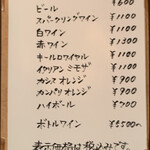 ビール ¥600
スパークリングワイン ¥1100
白ワイン ¥1100
赤ワイン ¥1300
キールロワイヤル ¥1100
イタリアンミモザ ¥1100
カシスオレンジ ¥900
カンパリオレンジ ¥900
ハイボール ¥700
ボトルワイン ¥5500〜
表示価格は税込みです。